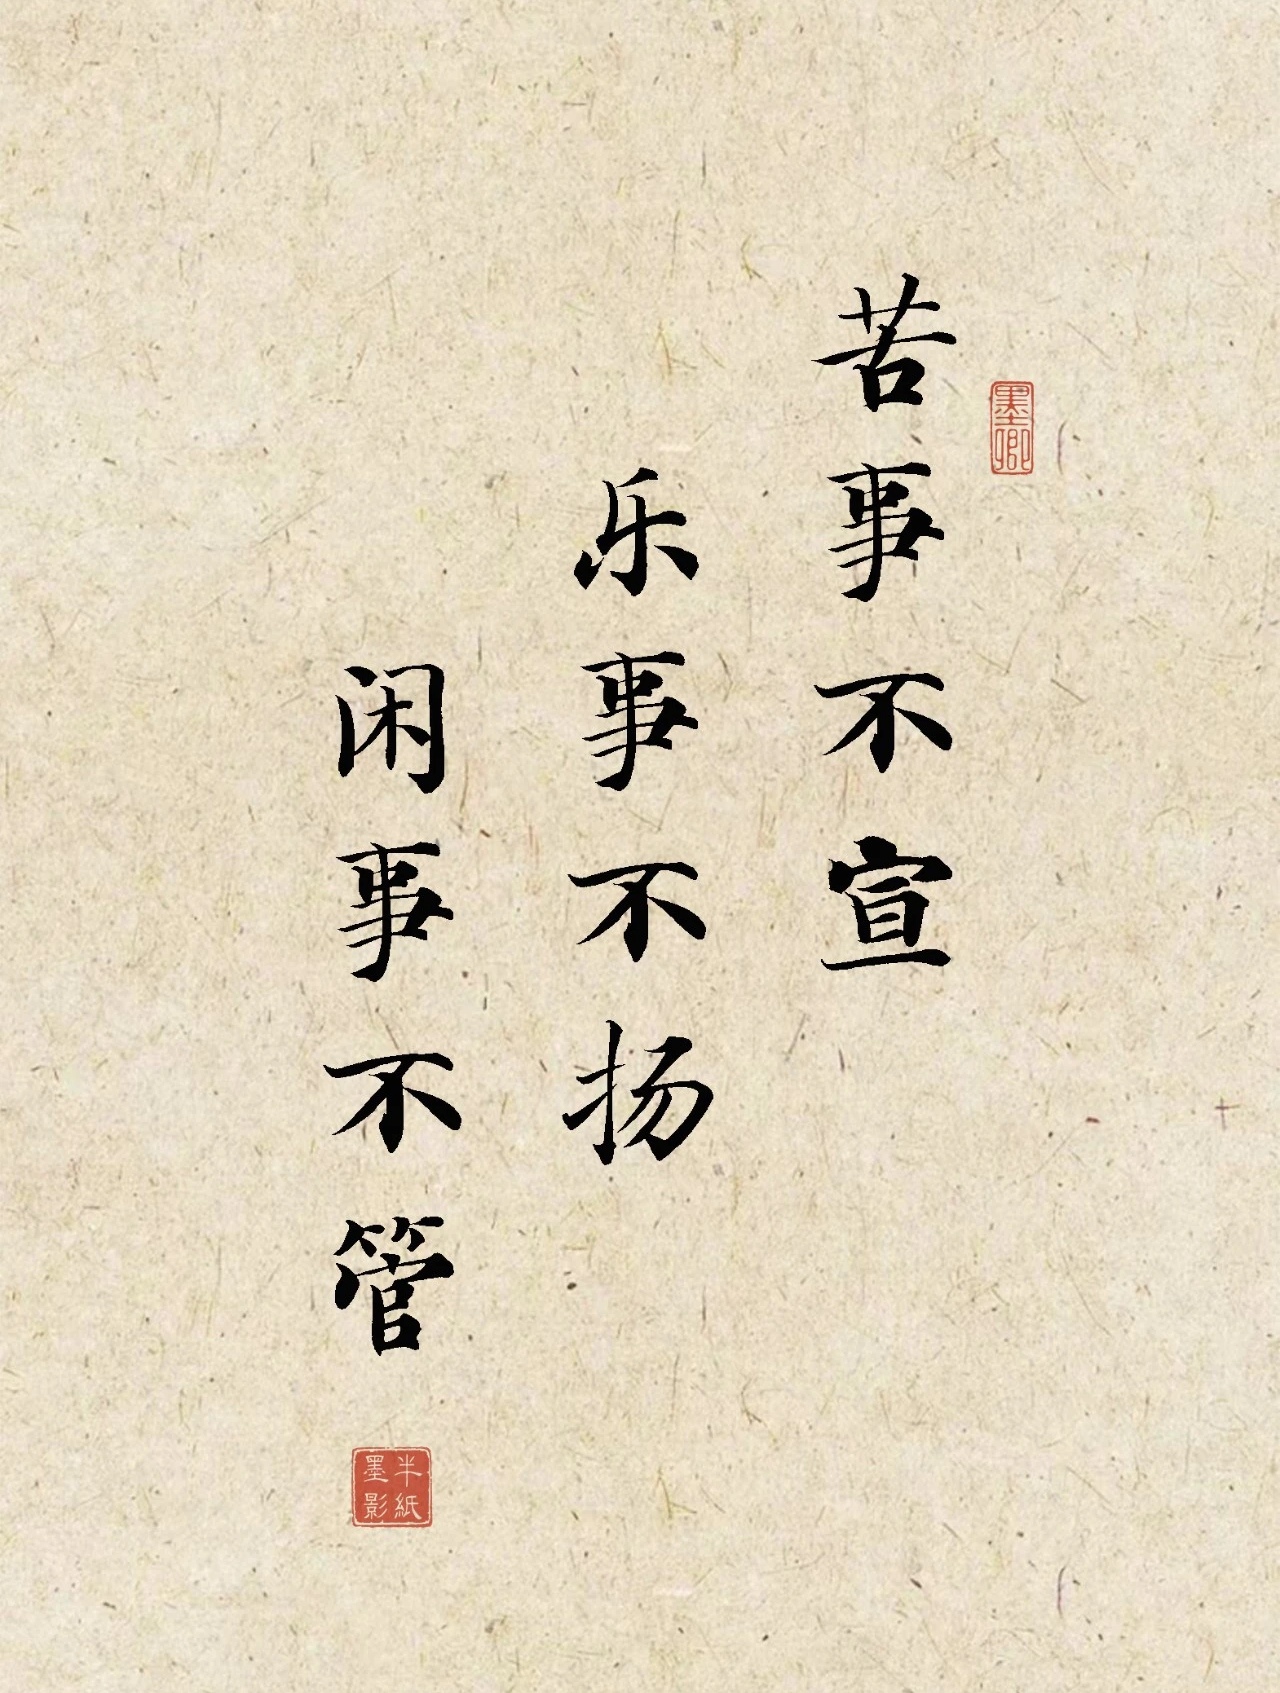 苦事不宣
乐事不扬
闲事不管
墨卿
半紙
墨影